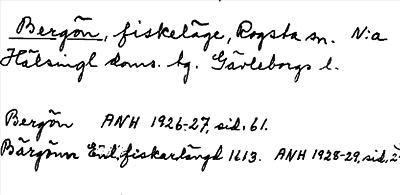 Bergön, fiskeläge, Rogsta sn. N:a
Hälsingl. doms. tg. Gävleborgs l.
Bergön ANH 1926-27, sid. 61.
Bärgönn Enl. fiskarlängd 1613. ANH 1928-29, sid. 2